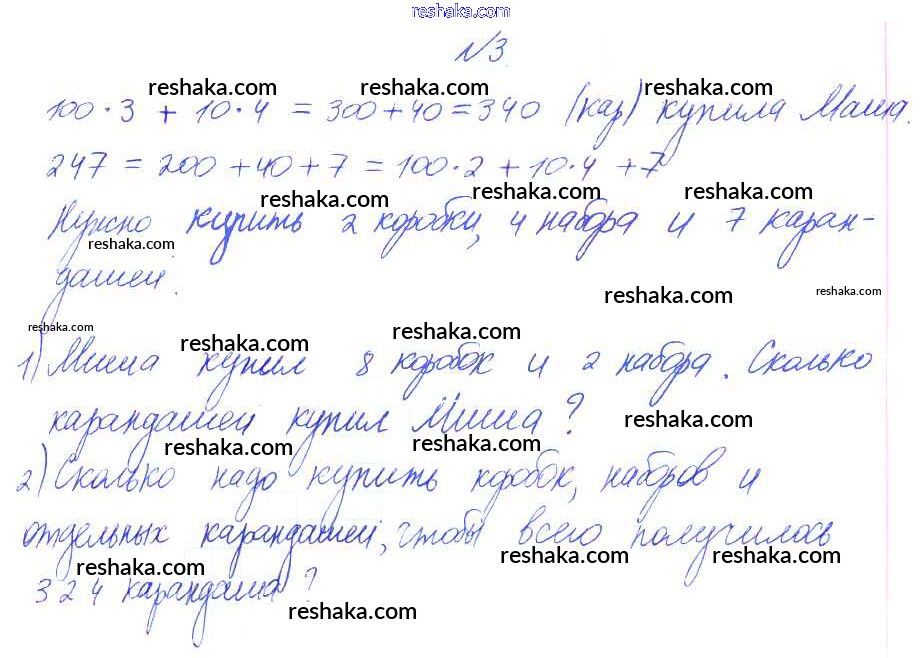 reshaka.com
№3
reshaka.com reshaka.com reshaka.com
100·3 + 10·4 = 300+40=340 (кар) купила Маша.
247 = 200 +40+7 = 100·2 + 10·4 +7
reshaka.com reshaka.com reshaka.com
Нужно купить 2 коробки, 4 набора и 7 каран-
reshaka.com
дашей.
reshaka.com reshaka.com
reshaka.com reshaka.com reshaka.com
1) Миша купил 8 коробок и 2 набора. Сколько
карандашей купил Миша?
reshaka.com
reshaka.com reshaka.com
2) Сколько надо купить коробок, наборов и
отдельных карандашей, чтобы всего получилось
reshaka.com reshaka.com reshaka.com
324 карандаша?
reshaka.com